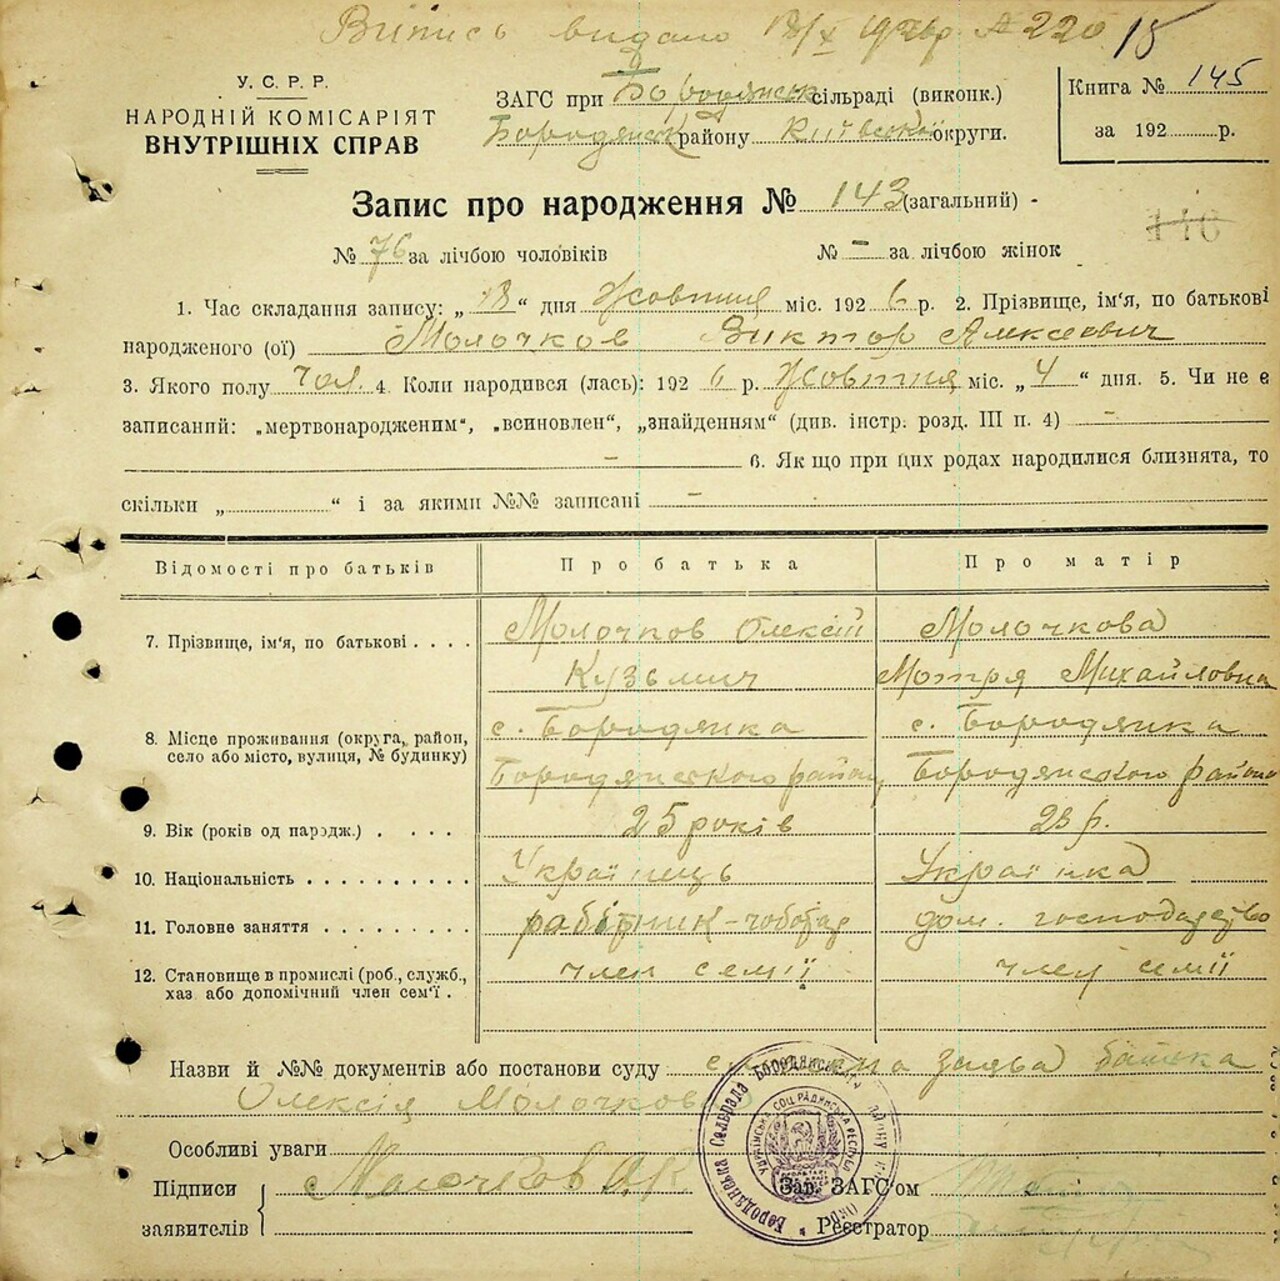 Випись видано 18/X 1926р. № 220 15
У. С. Р. Р.
НАРОДНІЙ КОМІСАРІЯТ
ВНУТРІШНІХ СПРАВ
ЗАГС при Бородянськ сільраді (виконк.)
Бородянськ району Київської округи.
Книга № 145
за 192 р.
Запис про народження № 143 (загальний)
146
№ 76 за лічбою чоловіків № - за лічбою жінок
1. Час складання запису: „ 18 “ дня Жовтня міс. 192 6 р. 2. Прізвище, ім'я, по батькові
народженого (ої) Молочков Виктор Алексеевич
3. Якого полу чол. 4. Коли народився (лась): 192 6 р. Жовтня міс. „ 4 “ дня. 5. Чи не є
записаний: „мертвонародженим“, „всиновлен“, „знайденням“ (див. інстр. розд. III п. 4) -
- 6. Якщо при цих родах народилися близнята, то
скільки „ “ і за якими №№ записані -
Відомості про батьків Про батька Про матір
7. Прізвище, ім'я, по батькові . . . . Молочков Олексій Молочкова
Кузьмич Мотря Михайловна
8. Місце проживання (округа, район, село або місто, вулиця, № будинку) с. Бородянка с. Бородянка
Бородянського району Бородянського району
9. Вік (років од народж.) . . . . 25 років 23 р.
10. Національність . . . . . . . . . Українець Українка
11. Головне заняття . . . . . . . . . рабітник-чоботар дом. господарство
12. Становище в промислі (роб., служб., член семії член семії
хаз. або допомічний член сем'ї .
Назви й №№ документів або постанови суду заява батька
Олексія Молочкова
Особливі уваги
Підписи Молочков А.К. Зав. ЗАГС'ом
заявителів Реєстратор
Бородянська Сельрада Бородянського району
УКРАЇНСЬКА СОЦ РАДЯНСЬКА РЕСПУБЛ